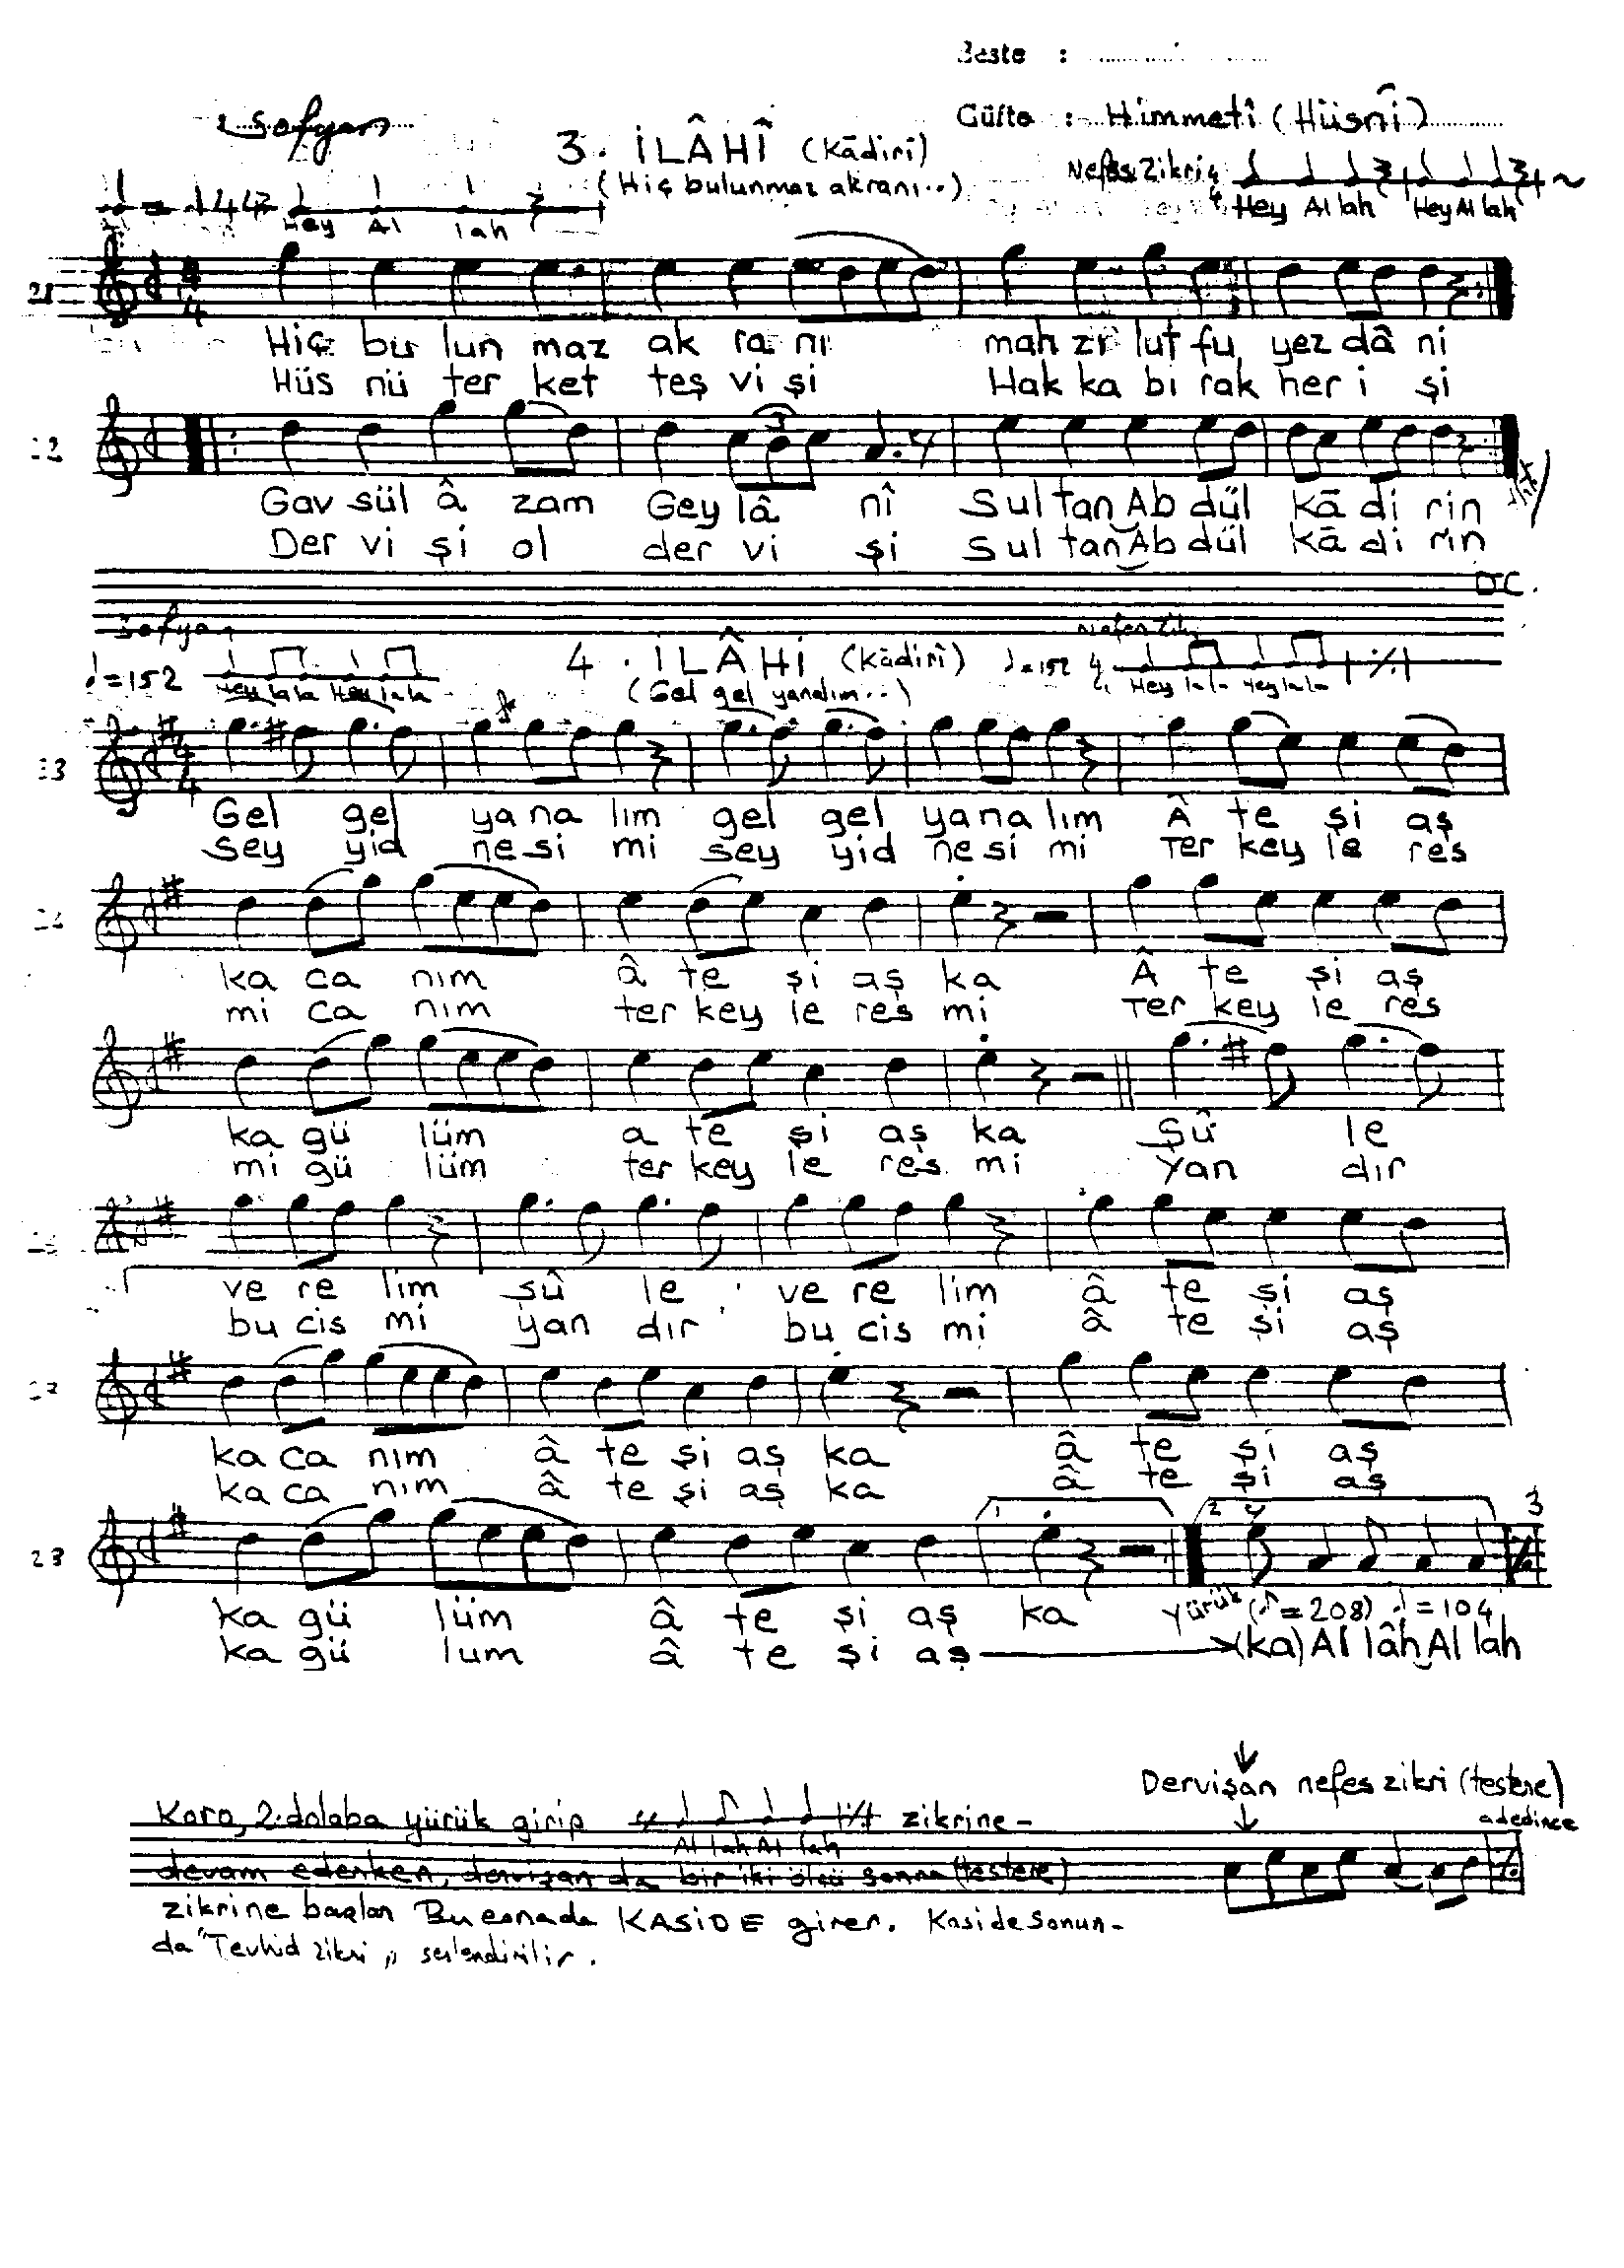 Beste :
Sofyan
Güfte : Himmetî (Hüsnî)
3. İLÂHÎ (Kādirî)
(Hiç bulunmaz akranı..)
Nefes Zikri
Hey Al lah Hey Al lah
Hey Al lah
21
Hiç bu lun maz ak ra nı mah zı lut fu yez dâ ni
Hüs nü ter ket teş vi şi Hak ka bi rak her i şi
Gav sül â zam Gey lâ nî Sul tan Ab dül kā di rin
Der vi şi ol der vi şi Sul tan Ab dül kā di rin
D.C.
Sofyan
4. İLÂHİ (Kādirî)
(Gel gel yanalım..)
♩=152
Hey la la Hey la la
♩=152
Hey la la Hey la la
Gel gel ya na lım gel gel ya na lım Â te şi aş
Sey yid ne si mi Sey yid ne si mi Ter key le res
ka ca nım â te şi aş ka Â te şi aş
mi ca nım ter key le res mi Ter key le res
ka gü lüm a te şi aş ka Şû le
mi gü lüm ter key le res mi Yan dır
ve re lim şû le ve re lim â te şi aş
bu cis mi yan dır bu cis mi â te şi aş
ka ca nım â te şi aş ka â te şi aş
ka ca nım â te şi aş ka â te şi aş
1 2 3
28
ka gü lüm â te şi aş ka Yürük (♪=208) ♩=104
ka gü lum â te şi aş (ka) Al lâh Al lah
Dervişan nefes zikri (testere)
adedince
Koro, 2. dolaba yürük girip zikrine-
Al lah Al lah
devam ederken, dervişan da bir iki ölçü sonra (testere)
zikrine başlar Bu esnada KASİDE girer. Kaside sonun-
da "Tevhid zikri" seslendirilir.